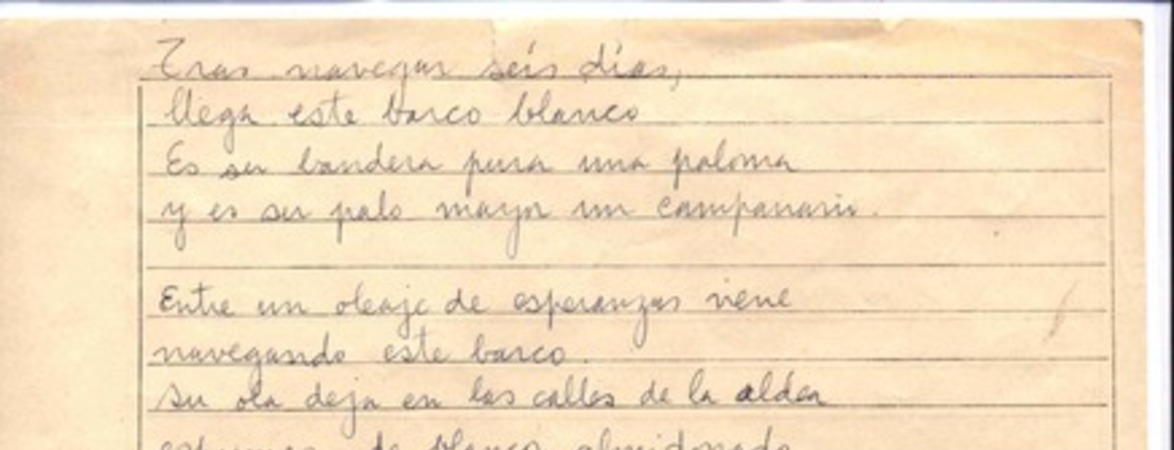 Tras navegar seis días,
llega este barco blanco
Es su bandera pura una paloma
y es su palo mayor un campanario.
Entre un oleaje de esperanzas viene
navegando este barco.
su ola deja en las calles de la aldea
espumas de blanco almidonado